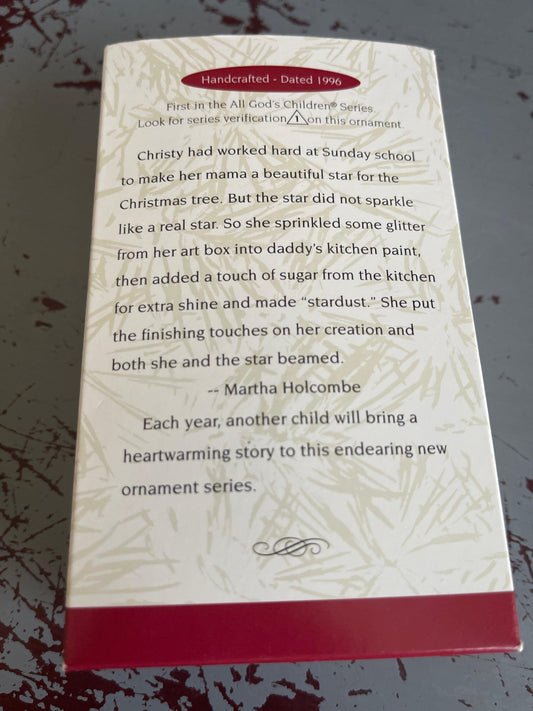 Handcrafted - Dated 1996
First in the All God's Children® Series.
Look for series verification △ on this ornament.
Christy had worked hard at Sunday school
to make her mama a beautiful star for the
Christmas tree. But the star did not sparkle
like a real star. So she sprinkled some glitter
from her art box into daddy's kitchen paint,
then added a touch of sugar from the kitchen
for extra shine and made "stardust." She put
the finishing touches on her creation and
both she and the star beamed.
-- Martha Holcombe
Each year, another child will bring a
heartwarming story to this endearing new
ornament series.